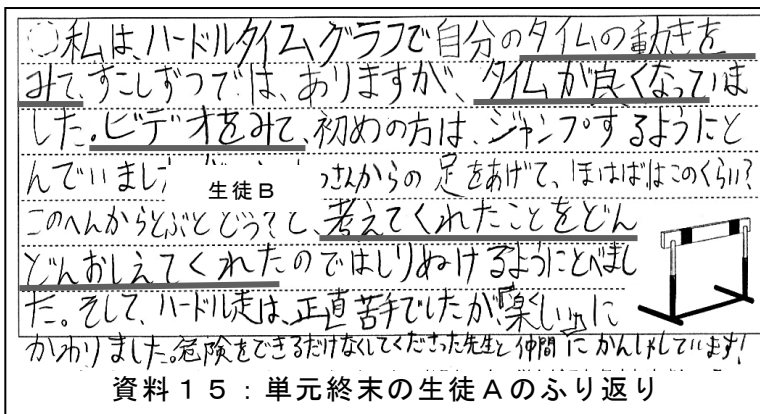 ○私は、ハードルタイムグラフで自分のタイムの動きを
みて、すこしずつでは、ありますが、タイムが良くなっていま
した。ビデオをみて、初めの方は、ジャンプするようにと
んでいました 生徒B さんからの足をあげて、ほはばはこのくらい?
このへんからとぶとどう?と、考えてくれたことをどん
どんおしえてくれたのではしりぬけるようにとべまし
た。そして、ハードル走は、正直苦手でしたが、『楽しい』に
かわりました。危険をできるだけなくしてくださった先生と仲間にかんしゃしています!
資料15:単元終末の生徒Aのふり返り